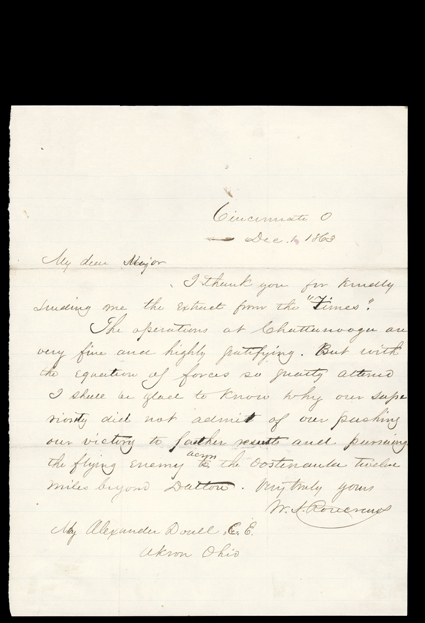 Cincinnati O
Dec. 1863
My dear Major
I thank you for kindly
sending me the extract from the "Times".
The operations at Chattanooga are
very fine and highly gratifying. But with
the equation of forces so greatly altered
I shall be glad to know why our supe
riority did not admit of our pushing
our victory to further result and pursuing
the flying enemy across the Oostenaula twelve
miles beyond Dalton. Very truly yours
W. S. Rosecrans
Maj Alexander Doull C. E.
Akron Ohio